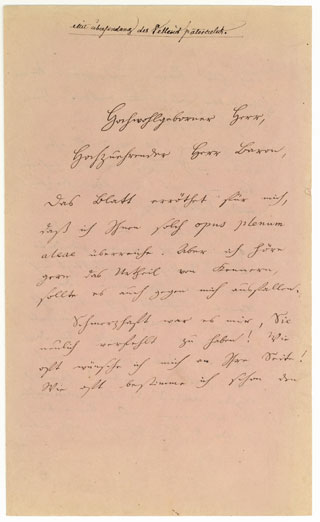 mit Übersendung des
Hochwohlgeborner Herr,
Hochzuehrender Herr Baron,
Das Blatt erröthet für mich,
daß ich Ihnen solch opus plenum
aleae überreiche. Aber ich höre
gern das Urtheil von Kennern,
sollte es auch gegen mich ausfallen.
Schmerzhaft war es mir, Sie
neulich verfehlt zu haben! Wie
oft wünsche ich mich an Ihre Seite!
Wie oft bestimme ich schon den